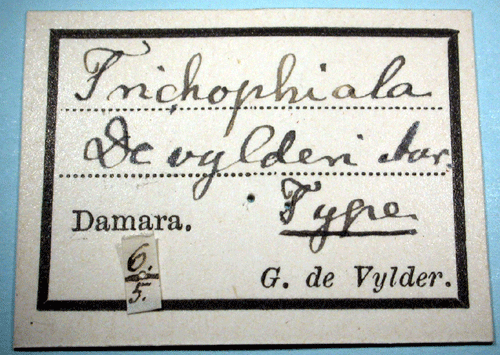 Trichophiala
Devylderi Aur.
Type
Damara.
6.
5.
G. de Vylder.